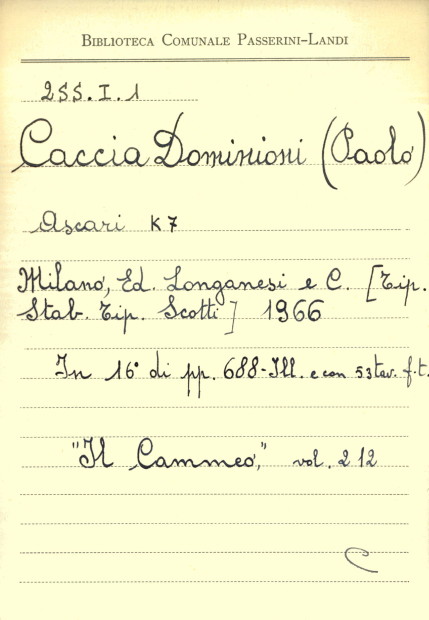 BIBLIOTECA COMUNALE PASSERINI-LANDI
2SS.I.1
Caccia Dominioni (Paolo)
Ascari K7
Milano, Ed. Longanesi e C. [Tip.
Stab. Tip. Scotti] 1966
In 16° di pp. 688-Ill. e con 53 tav. f.t.
"Il Cammeo," vol. 212
C